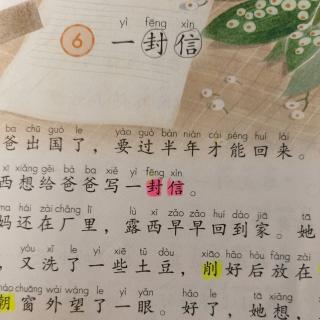 yì fēng xìn
6 一封信
ba chū guó le yào guò bàn nián cái néng huí lái
爸出国了，要过半年才能回来。
xī xiǎng gěi bà ba xiě yì fēng xìn
西想给爸爸写一封信。
mā hái zài chǎng lǐ lù xī zǎo zǎo huí dào jiā tā
妈还在厂里，露西早早回到家。她
yòu xǐ le yì xiē tǔ dòu xiāo hǎo hòu fàng zài
，又洗了一些土豆，削好后放在
cháo chuāng wài wàng le yì yǎn hǎo le tā xiǎng
朝窗外望了一眼。好了，她想，